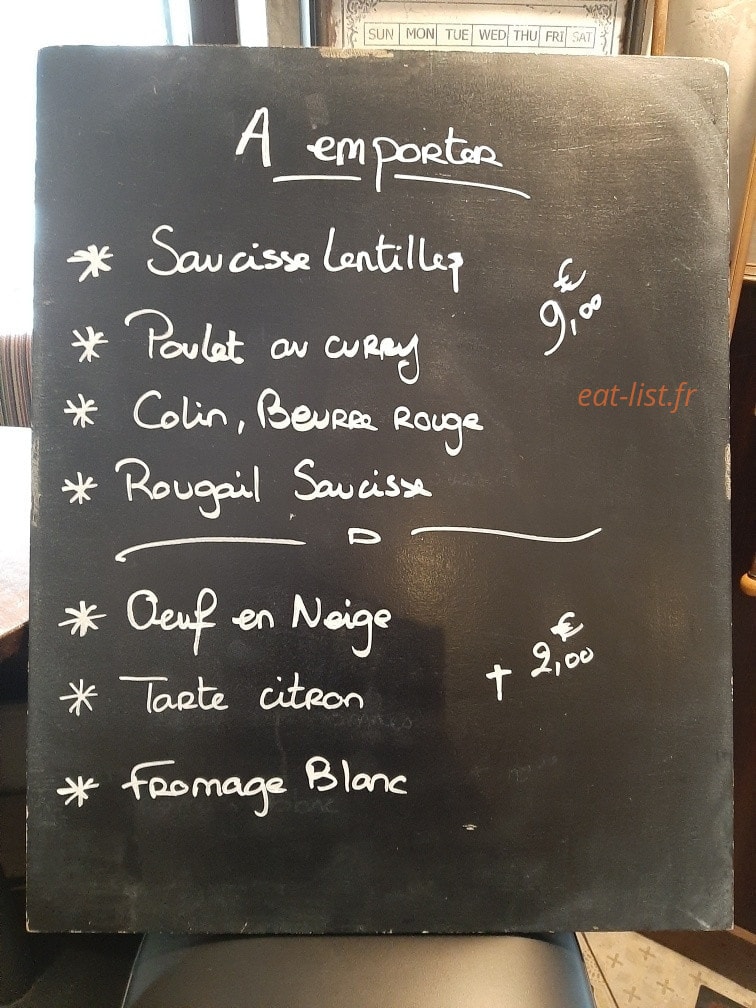 SUN MON TUE WED THU FRI SAT
A emporter
* Saucisse Lentilles
€
9,00
* Poulet au curry
eat-list.fr
* Colin, Beurre Rouge
* Rougail Saucisse
* Oeuf en Neige
€
+ 2,00
* Tarte citron
* Fromage Blanc